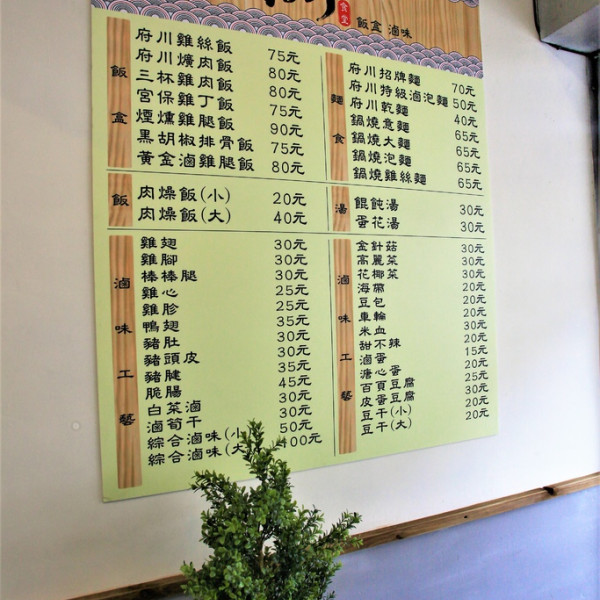 食堂
飯盒 滷味
飯盒
府川雞絲飯 75元
府川爌肉飯 80元
三杯雞肉飯 80元
宮保雞丁飯 75元
煙燻雞腿飯 90元
黑胡椒排骨飯 75元
黃金滷雞腿飯 80元
麵食
府川招牌麵 70元
府川特級滷泡麵 50元
府川乾麵 40元
鍋燒意麵 65元
鍋燒大麵 65元
鍋燒泡麵 65元
鍋燒雞絲麵 65元
飯
肉燥飯(小) 20元
肉燥飯(大) 40元
湯
餛飩湯 30元
蛋花湯 30元
滷味工藝
雞翅 30元
雞腳 30元
棒棒腿 30元
雞心 25元
雞胗 25元
鴨翅 35元
豬肚 30元
豬頭皮 30元
豬腱 35元
脆腸 45元
白菜滷 30元
滷筍干 30元
綜合滷味(小) 50元
綜合滷味(大) 100元
滷味工藝
金針菇 30元
高麗菜 30元
花椰菜 30元
海帶 20元
豆包 20元
車輪 20元
米血 30元
甜不辣 20元
滷蛋 15元
溏心蛋 20元
百頁豆腐 25元
皮蛋豆腐 30元
豆干(小) 20元
豆干(大) 20元